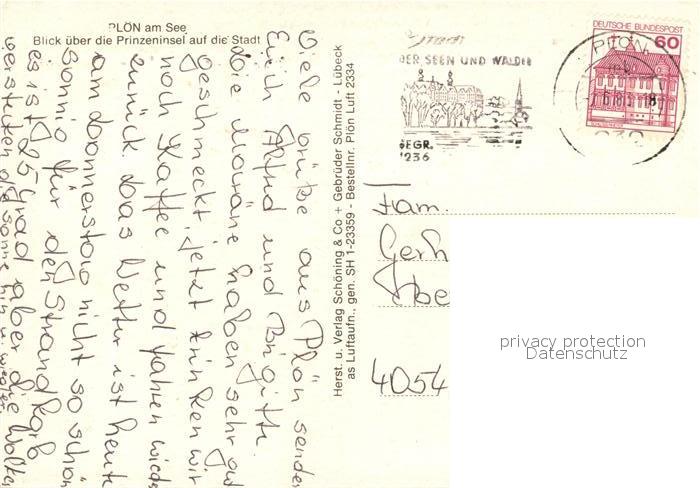 PLÖN am See
Blick über die Prinzeninsel auf die Stadt
Viele Grüße aus Plön senden
Euch Alfred und Brigitte.
die Maräne haben sehr gut
geschmeckt, jetzt trinken wir
noch Kaffee und fahren wieder
zurück. Das Wetter ist heute
am Donnerstag nicht so schön
sonnig für den Strandkorb
es ist 25 Grad aber die Wolken
verstecken die Sonne hin u. wieder
Herst. u. Verlag Schöning & Co + Gebrüder Schmidt - Lübeck
as Luftaufn., gen. SH 1-23359 - Bestellnr. Plön Luft 2334
DER SEEN UND WÄLDER
GEGR.
1236
PLÖN
DEUTSCHE BUNDESPOST
60
Fam.
Gerh
4054
privacy protection
Datenschutz